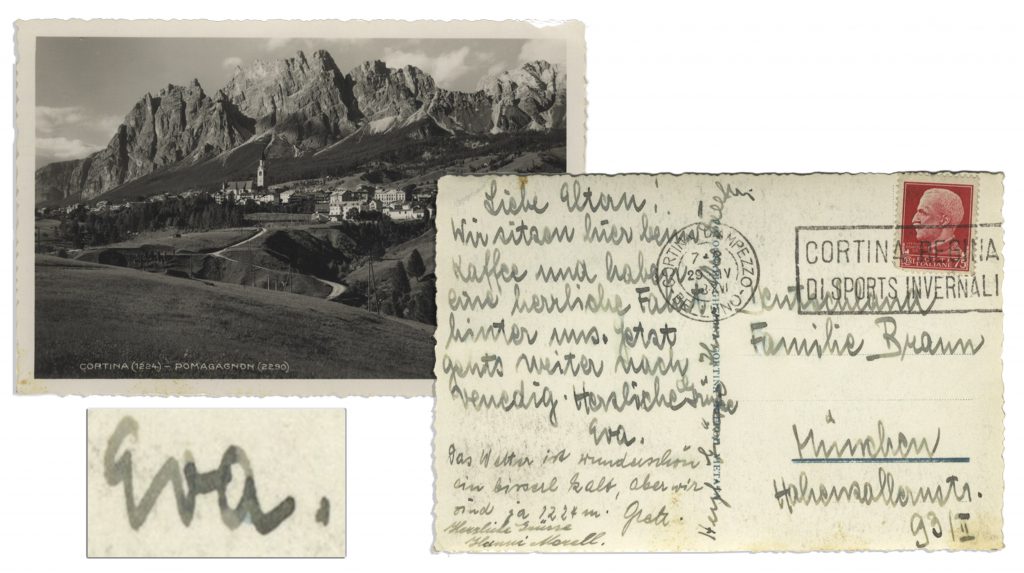 CORTINA (1224) - POMAGAGNON (2290)
Liebe Eltern!
Wir sitzen hier beim
Kaffee und haben
eine herrliche Fahrt
hinter uns. Jetzt
gehts weiter nach
Venedig. Herzliche Grüße
Eva.
Das Wetter ist wunderschön
ein bisserl kalt, aber wir
sind ja 1224 m. Gretl.
Herzliche Grüsse
Hanni Morell.
CORTINA D'AMPEZZO
29 IV
CORTINA REGINA
DI SPORTS INVERNALI
ITALIANE 75
Familie Braun
München
Hohenzollernstr.
93/II
Eva.